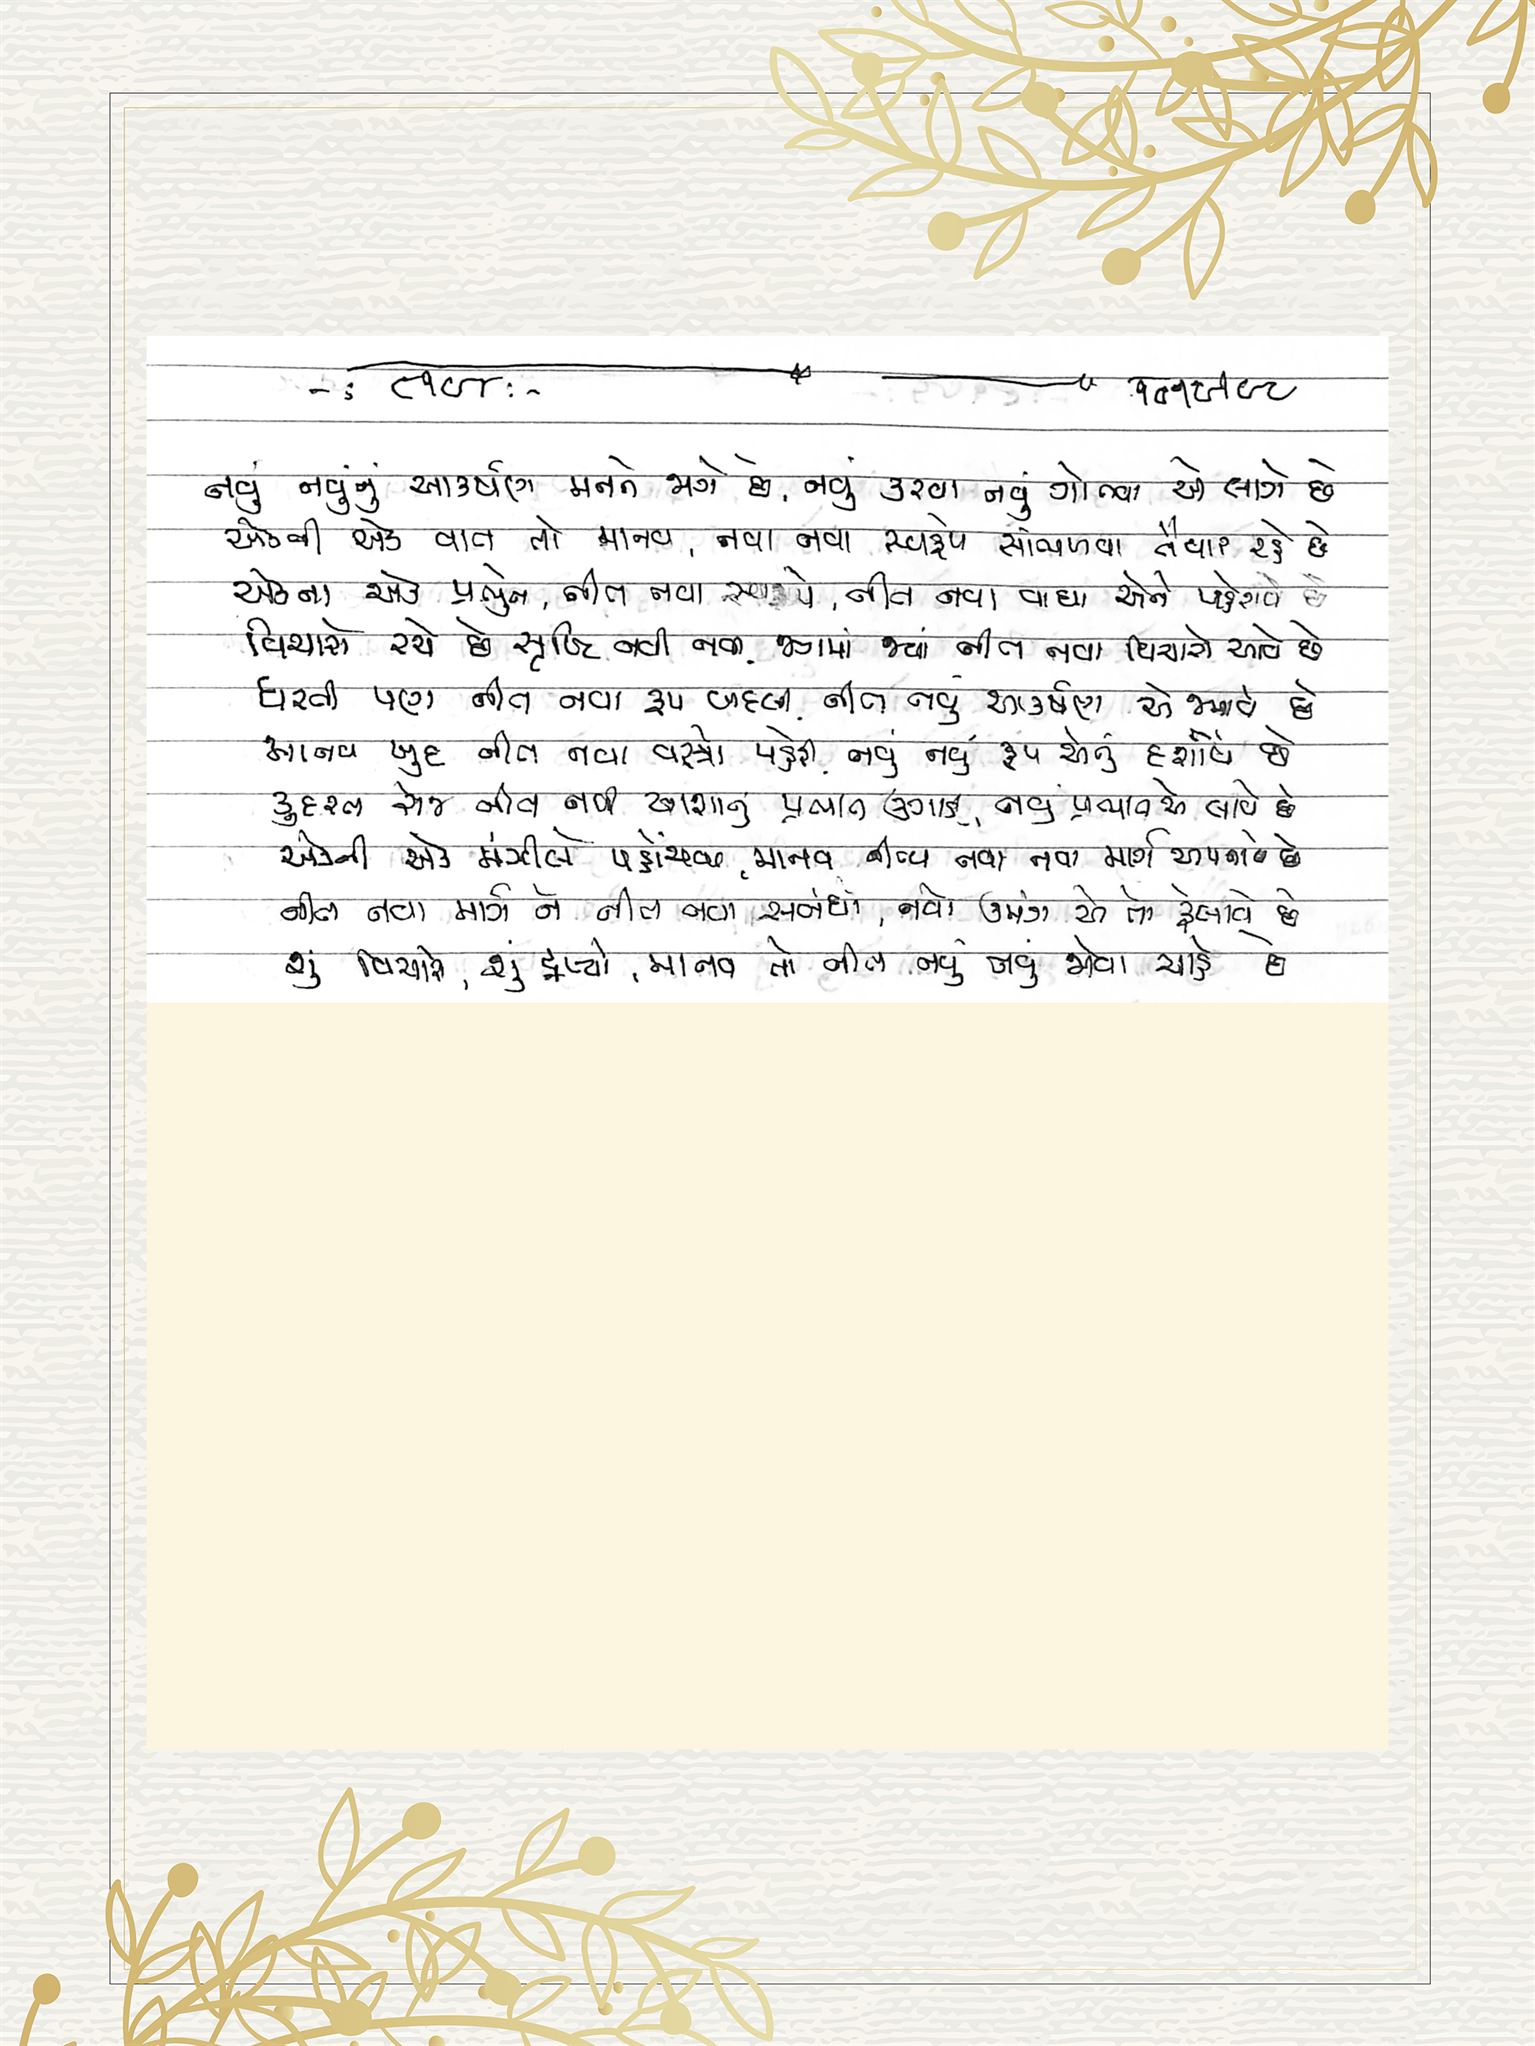 નવું નવુંનું આકર્ષણ મનને જાગે છે, નવું કરવા નવું ગોતવા એ લાગે છે
એકની એક વાત તો માનવ, નવા નવા સ્વરૂપે સાંભળવા તૈયાર રહે છે
એકના એક પ્રભુને, નીત નવા સ્વરૂપે, નીત નવા વાઘા એને પહેરાવે છે
વિચારો રચે છે સૃષ્ટિ નવી નવી, જ્યાં નીત નવા વિચારો આવે છે
ધરતી પણ નીત નવા રૂપ બદલી, નીત નવું આકર્ષણ એ જમાવે છે
માનવ ખુદ નીત નવા વસ્ત્રો પહેરી, નવું નવું રૂપ એનું દર્શાવે છે
કુદરત રોજ નીત નવી આશાનું પ્રભાત ઉગાડી, નવું પ્રભાત એ લાવે છે
એકની એક મંઝીલે પહોંચવા, માનવ નીત્ય નવા નવા માર્ગ અપનાવે છે
નીત નવા માર્ગ ને નીત નવા સબંધો, નવો ઉમંગ એ તો ફેલાવે છે
શું વિચારો, શું દૃશ્યો, માનવ તો નીત નવું નવું જોવા ચાહે છે